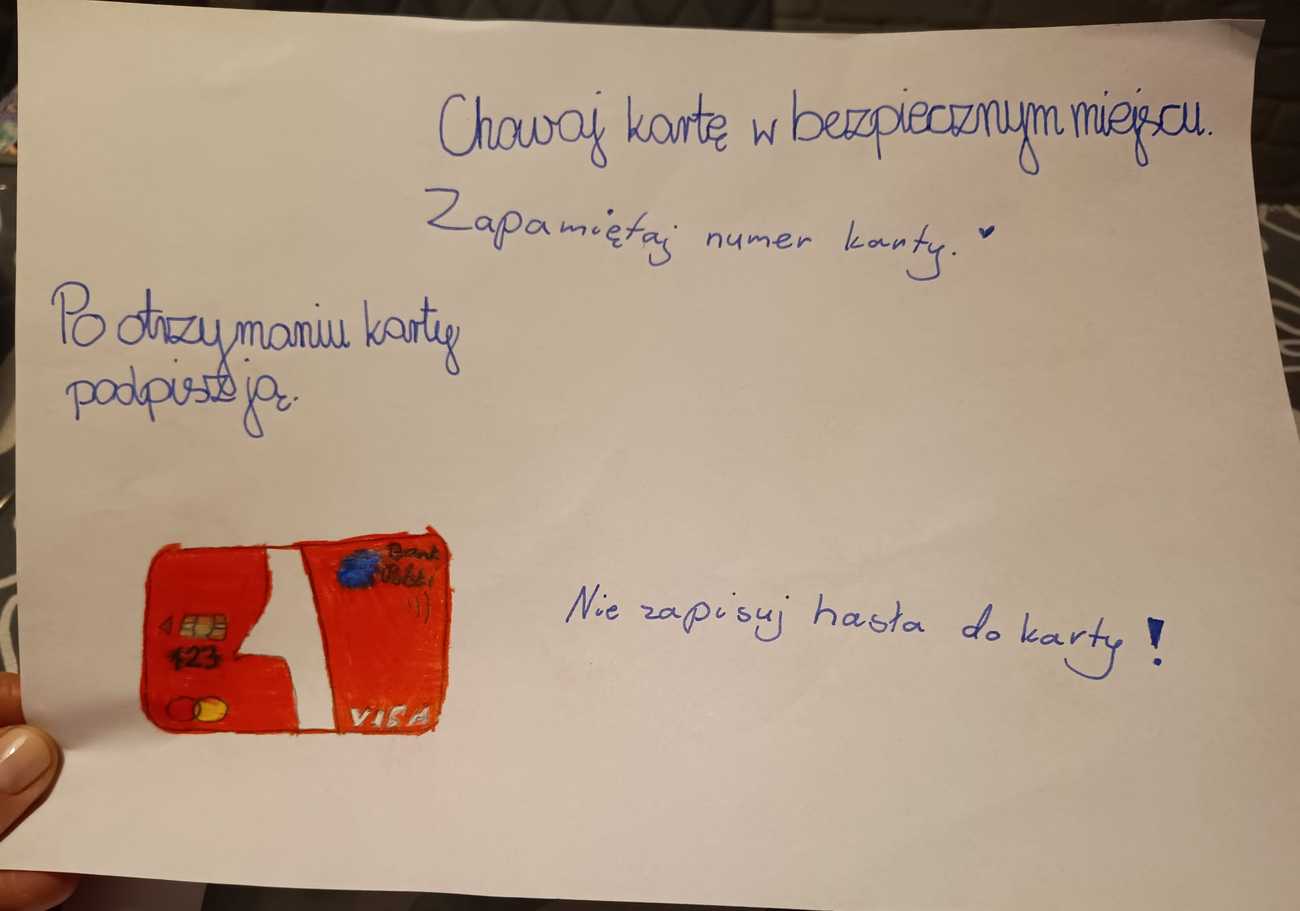 Chowaj kartę w bezpiecznym miejscu.
Zapamiętaj numer karty.
Po otrzymaniu karty
podpisz ją.
Bank
Polski
123
VISA
Nie zapisuj hasła do karty!